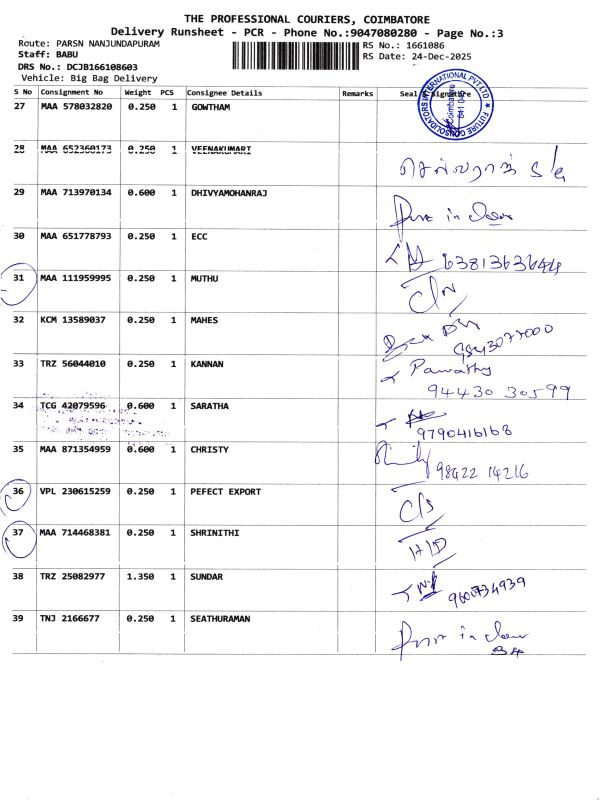 THE PROFESSIONAL COURIERS, COIMBATORE
Delivery Runsheet - PCR - Phone No.:9047080280 - Page No.:3
Route: PARSN NANJUNDAPURAM RS No.: 1661086
Staff: BABU RS Date: 24-Dec-2025
DRS No.: DCJB166108603
Vehicle: Big Bag Delivery
S No Consignment No Weight PCS Consignee Details Remarks Seal & Signature
27 MAA 578032820 0.250 1 GOWTHAM
28 MAA 652360173 0.250 1 VEENAKUMARI
29 MAA 713970134 0.600 1 DHIVYAMOHANRAJ
30 MAA 651778793 0.250 1 ECC 6381363644
31 MAA 111959995 0.250 1 MUTHU
32 KCM 13589037 0.250 1 MAHES
33 TRZ 56044010 0.250 1 KANNAN Parvathy
94430 30599
34 TCG 42079596 0.600 1 SARATHA
9790416168
35 MAA 871354959 0.600 1 CHRISTY 98422 14216
36 VPL 230615259 0.250 1 PEFECT EXPORT C/S
37 MAA 714468381 0.250 1 SHRINITHI H/D
38 TRZ 25082977 1.350 1 SUNDAR 9600734939
39 TNJ 2166677 0.250 1 SEATHURAMAN